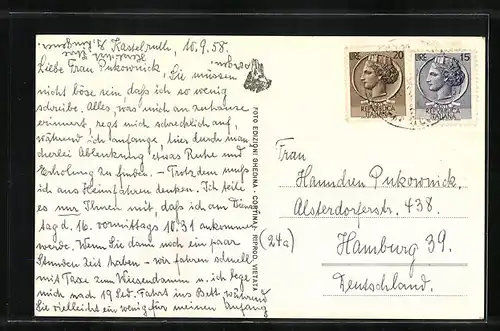 Kastelruth, 10.9.58.
Liebe Frau Pukownick, Sie müssen
nicht böse sein daß ich so wenig
schreibe. Alles, was mich an zuhause
erinnert, regt mich schrecklich auf,
während ich anfange, hier durch man-
cherlei Ablenkung etwas Ruhe und
Erholung zu finden. – Trotzdem muß
ich ans Heimfahren denken. Ich teile
es nur Ihnen mit, daß ich am Diens
tag d. 16. vormittags 10.31 ankommen
werde. Wenn Sie dann noch ein paar
Stunden Zeit haben – wir fahren schnell
mit Taxe zum Wiesendamm u. ich lege
mich nach 19 Std. Fahrt ins Bett während
Sie vielleicht ein wenig für meinen Anfang
sorgen.
FOTO EDIZIONI GHEDINA - CORTINA - RIPROD. VIETATA
LIRE 20
ITALIANA
LIRE 15
ITALIANA
Frau
Pukownick,
Alsterdorferstr. 438.
(24a) Hamburg 39.
Deutschland.